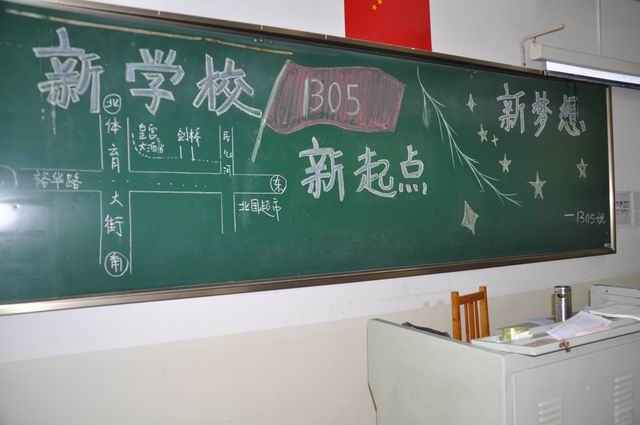 新学校
1305
新起点
新梦想
北
体育大街
南
裕华路
皇宫
大酒店
剑桥
民心河
东
北国超市
—1305班